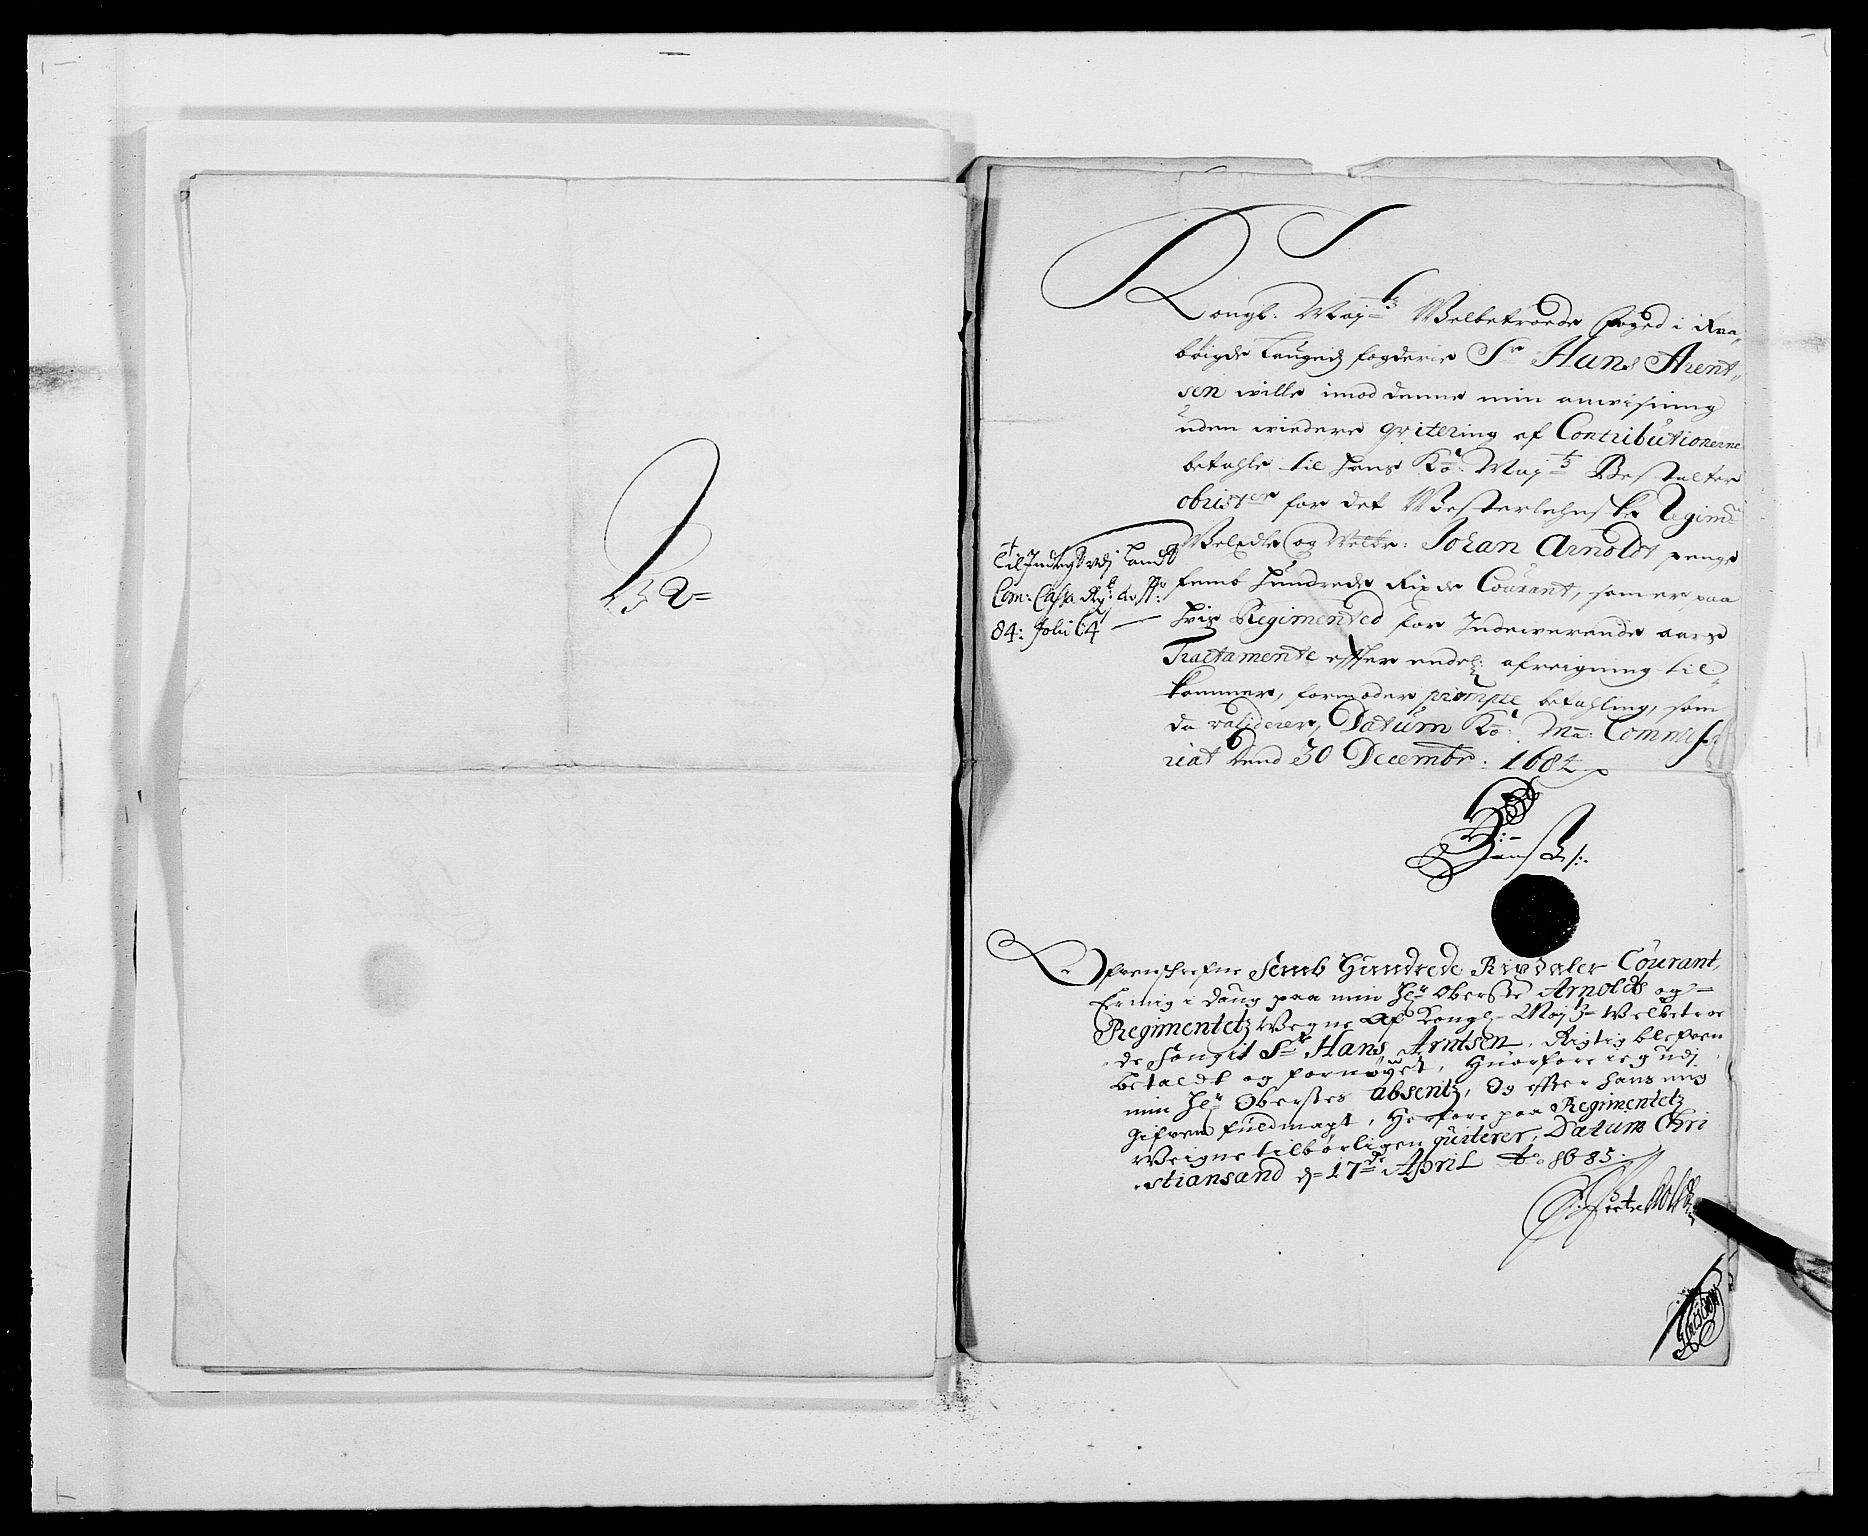 Kongl: Maj:ts Welbetroede foged i Raa„
bøigde Laugeds fogderie Sr Hans Arent„
sen wille imod denne min anvisning
uden videre qvitering af Contributionerne
betahle til hans Ko: Maj:ts Bestalter
obrister for det Westerlehnske Regim:
Weledle og Welbr: Johan Arnoldt penge
femb Hundrede Rixdr Courant, som er paa
hvis Regimented for Indewerende aars
Tractamente effter endel: afreigning til„
kommer, formoder prompte betahling, som
da validerer, Datum Ko: Ma: Commissa
riat Dend 30 Decembr: 1684
Til Indtegt vdj Land
Com: Cassa Regsk:
84: folio 64
Ofvenschrefne Femb Hundrede Rixdaler Courant,
Er mig i Daug paa min Hr Oberste Arnoldts og
Regimentetz Wegne af Kongl: Maj:ts Welbetroe
de fougit Sr Hans Arntsen, Rigtig blefven
betaldt og fornøyet, Huorfore ieg udj
min Hr Oberstes absentz, Og effter hans mig
gifven fuldmagt, Herfore paa Regimentetz
Weigne tilbørligen quiterer, Datum Chri
stiansand d 17de April Ao 1685: